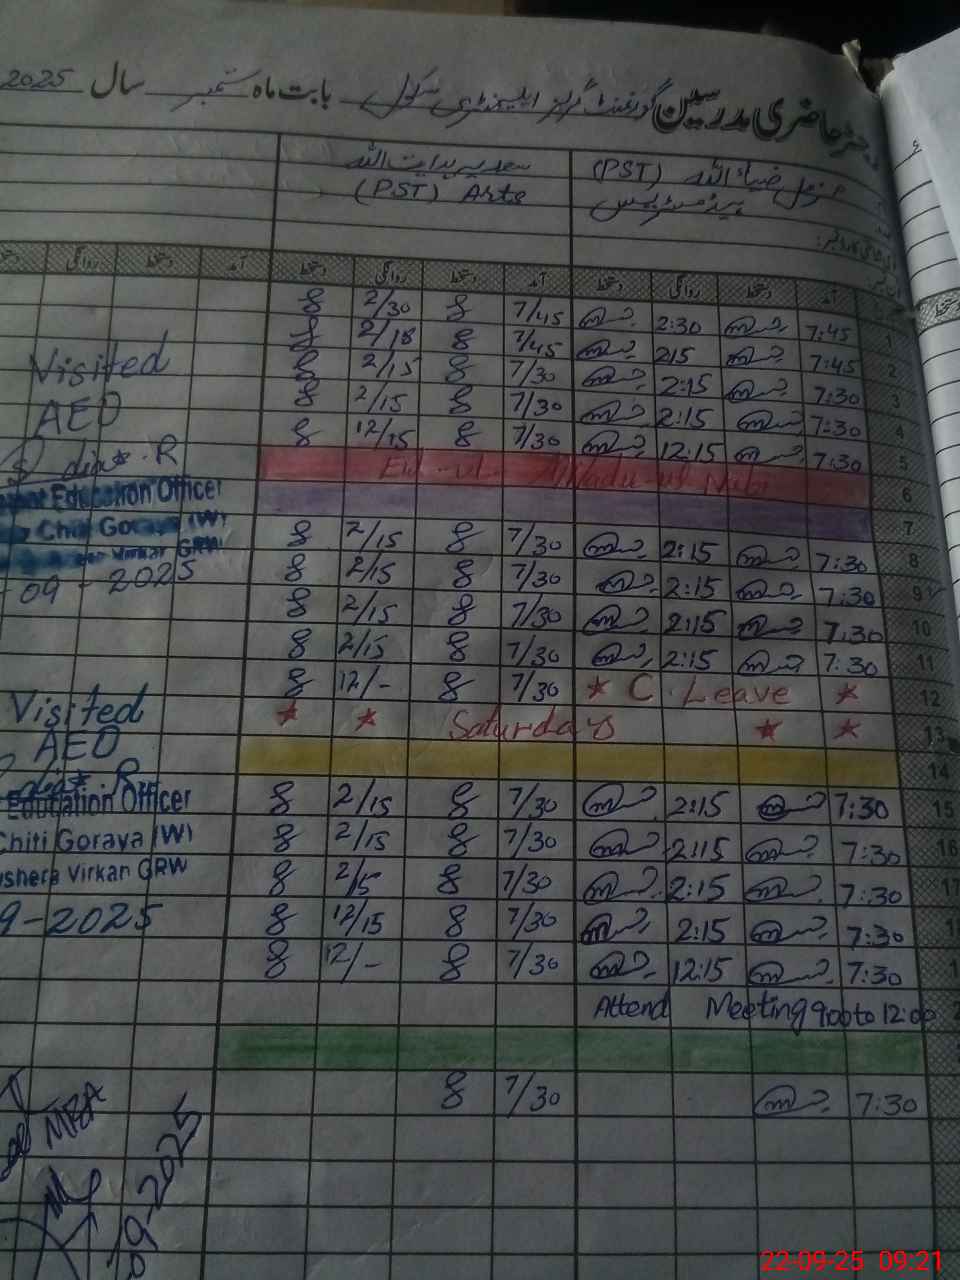 رجسٹر حاضری مدرسین گورنمنٹ گرلز ایلیمنٹری سکول بابت ماہ ستمبر سال 2025
سعدیہ ہدایت اللہ
(PST) Arts
ضیاء اللہ (PST)
ہیڈمسٹریس
آمد دستخط روانگی دستخط آمد دستخط روانگی دستخط آمد دستخط روانگی
1 7:45 2:30 7/45 2/30
2 7:45 215 7/45 2/18
3 7:30 2:15 7/30 2/15
4 7:30 2:15 7/30 2/15
5 7:30 12:15 7/30 12/15
6 Eid-ul-
7
8 7:30 2:15 7/30 2/15
9 7:30 2:15 7/30 2/15
10 7:30 2:15 7/30 2/15
11 7:30 2:15 7/30 2/15
12 * C Leave * 7/30 12/-
13 * * Saturday * *
14
15 7:30 2:15 7/30 2/15
16 7:30 2:15 7/30 2/15
7:30 2:15 7/30 2/15
7:30 2:15 7/30 12/15
7:30 12:15 7/30 12/-
Attend Meeting 9:00 to 12:00
7:30 7/30
Visited
AEO
Education Officer
Goraya (W)
Virkan GRW
- 09 - 2025
Visited
AEO
Education Officer
Chiti Goraya (W)
Virkan GRW
9-2025
MEA
09-2025
22-09-25 09:21